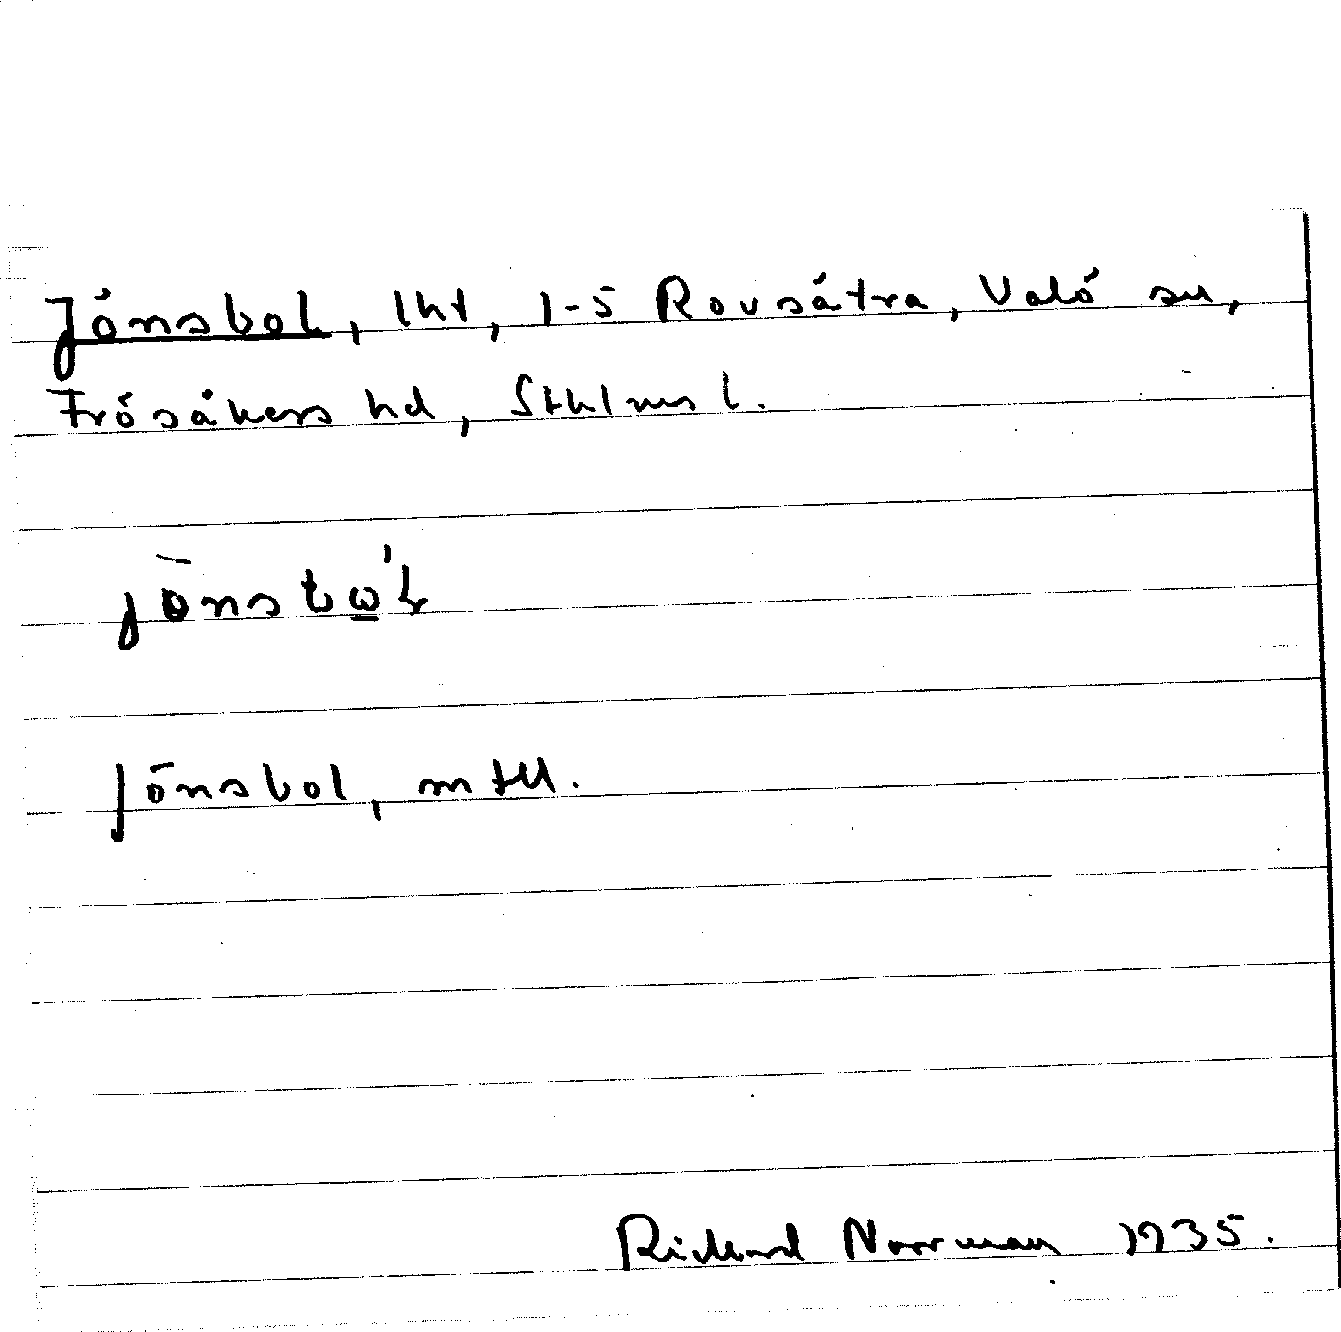 Jönsbol, lht, 1-5 Rovsätra, Valö sn,
Frösåkers hd, Sthlms l.
Jönsbol, mtll.
Richard Norrman 1935.